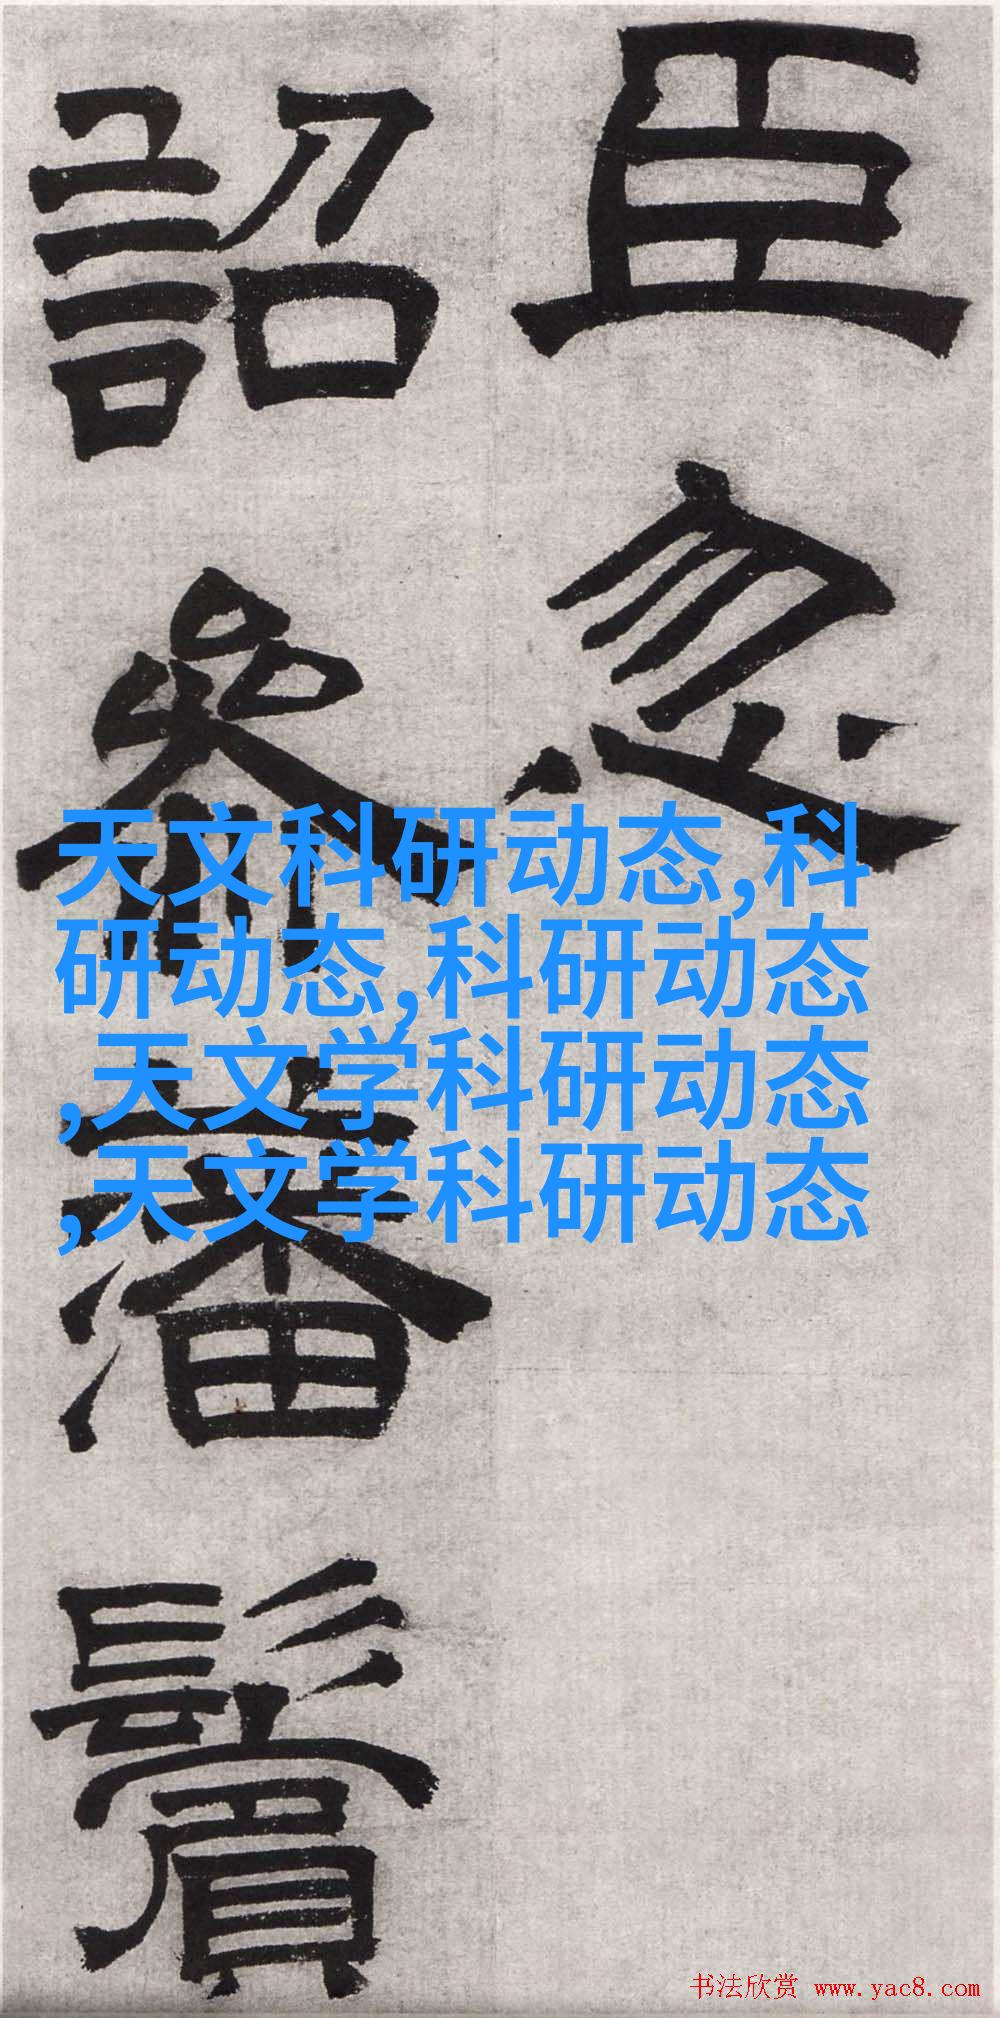 臣忽
詔參藩
鬢
天文科研动态,科
研动态,科研动态
,天文学科研动态
,天文学科研动态
书法欣赏 www.yac8.com